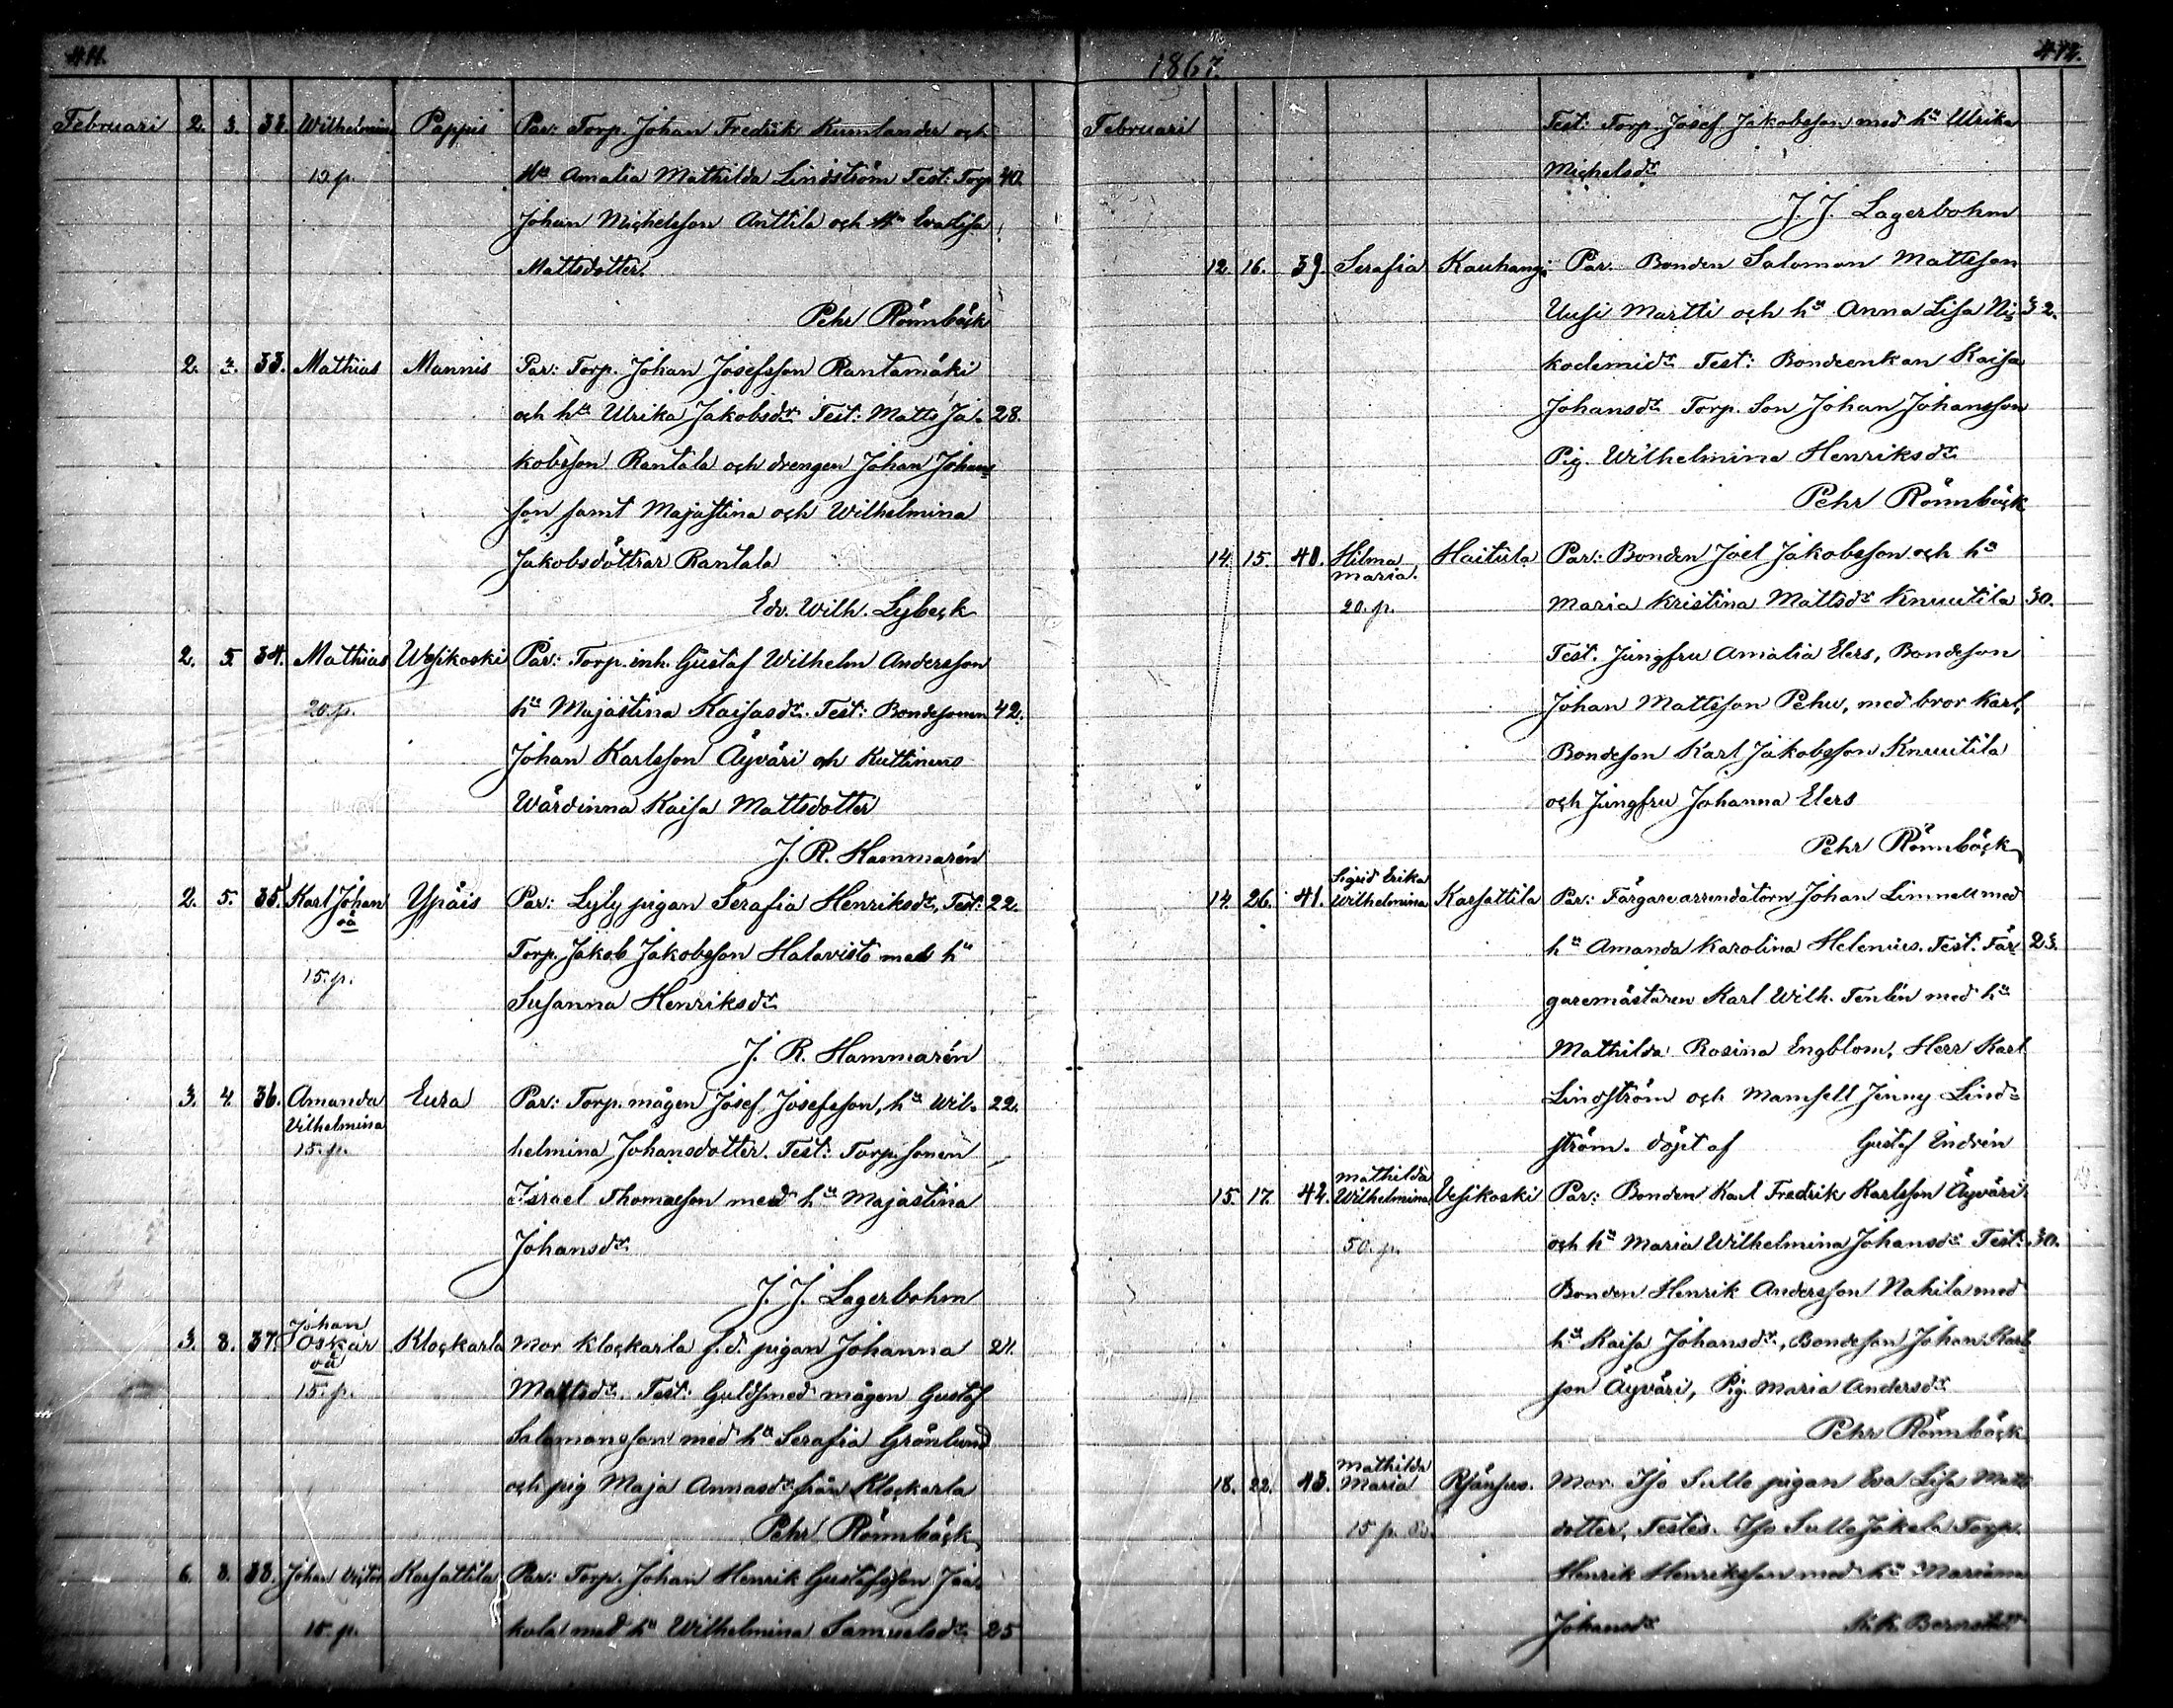 411.
Februari 2. 3. 32. Wilhelmina Pappis Par: Torp. Johan Fredrik Kumlander och
15 p. Hu Amalia Mathilda Lindström Test: Torp 40.
Johan Michelsson Anttila och Hu Evalisa
Mattsdotter.
Pehr Rönnbäck
2. 3. 33. Mathias Mannis Par: Torp. Johan Josefsson Rantamäki
och hu Ulrika Jakobsdr. Test: Matts Ja- 28.
kobsson Rantala och drengen Johan Johans-
son samt Majastina och Wilhelmina
Jakobsdöttrar Rantala
Edv. Wilh. Lybeck
2. 5. 34. Mathias Wesikoski Par: Torp. inh. Gustaf Wilhelm Andersson
20. p. hu Majastina Kaisasdr. Test: Bondesonen 42.
Johan Karlsson Äyväri och Kuttinens
Wärdinna Kaisa Mattsdotter
J. R. Hammarén
2. 5. 35. Karl Johan Ypäis Par: Lyly pigan Serafia Henriksdr, Test: 22.
oä
Torp. Jakob Jakobsson Halavisto med hu
15. p.
Susanna Henriksdr
J. R. Hammarén
3. 4 36. Amanda Eura Par: Torp. mågen Josef Josefsson, hu Wil- 22.
Vilhelmina
15. p. helmina Johansdotter. Test: Torp. sonen
Israel Thomasson med hu Majastina
Johansdr.
J. J. Lagerbohm
Johan
3. 8. 37. Oskar Klockarla Mor Klockarla f.d. pigan Johanna 21.
oä
15. p. Mattsdr. Test: Guldsmed mågen Gustaf
Salomonsson med hu Serafia Grönlund
och pig Maja Annasdr från Klockarla
Pehr Rönnbäck
6. 8. 38. Johan Victor Karsattila Par: Torp. Johan Henrik Gustafsson Jaa-
15. p. kola med hu Wilhelmina Samuelsdr. 25
1867.
412.
Februari Test: Torp. Josef Jakobsson med hu Ulrika
Michelsdr
J. J. Lagerbohm
12. 16. 39. Serafia Kauhangi Par. Bonden Salomon Mattsson
Uusi Martti och hu Anna Lisa Ni- 32.
kodemidr. Test: Bondeenkan Kaisa
Johansdr. Torp. Son Johan Johansson
Pig. Wilhelmina Henriksdr.
Pehr Rönnbäck
14. 15. 40. Hilma Haitula Par: Bonden Joel Jakobsson och hu
Maria.
20. p. Maria Kristina Mattsdr Knuutila 30.
Test. Jungfru Amalia Elers, Bondeson
Johan Mattsson Pehu, med bror Karl,
Bondeson Karl Jakobsson Knuutila
och Jungfru Johanna Elers
Pehr Rönnbäck
Sigrid Erika
14. 26. 41. Wilhelmina Karsattila Par: Färgare arrendatorn Johan Linnell med
hu Amanda Karolina Helenius. Test: Fär- 23.
garemästaren Karl Wilh. Tenlén med hu
Mathilda Rosina Engblom, Herr Karl
Lindström och Mamsell Jenny Lind-
ström. döpt af Gustaf Indrén
Mathilda
15. 17. 42. Wilhelmina Vesikoski Par: Bonden Karl Fredrik Karlsson Äyväri
50. p. och hu Maria Wilhelmina Johansdr Test: 30.
Bonden Henrik Andersson Nahila med
hu Kaisa Johansdr, Bondeson Johan Karls-
son Äyväri, Pig. Maria Andersdr
Pehr Rönnbäck
Mathilda
18. 22. 43. Maria Mor. Iso Sullo pigan Eva Lisa Matts
15 p. dotter, Testes. Iso Sullo Jakola Torp.
Henrik Henriksson med hu Mariana
Johansdr